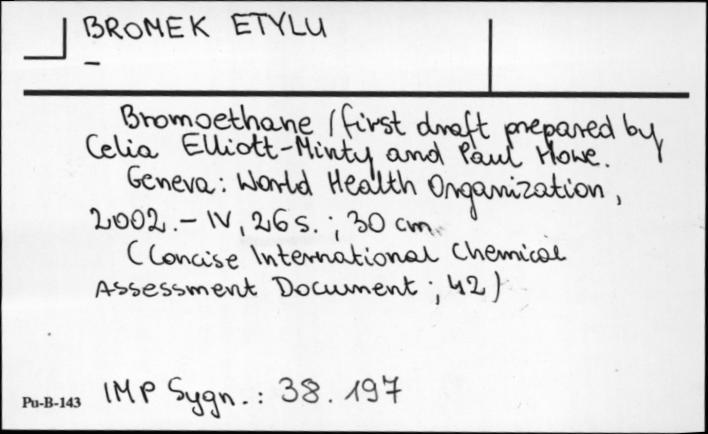 BROMEK ETYLU
–
Bromoethane / first draft prepared by
Celia Elliott-Minty and Paul Howe.
Geneva : World Health Organization,
2002. – IV, 26 s. ; 30 cm.
(Concise International Chemical
Assessment Document ; 42)
Pu-B-143 IMP Sygn. : 38.197